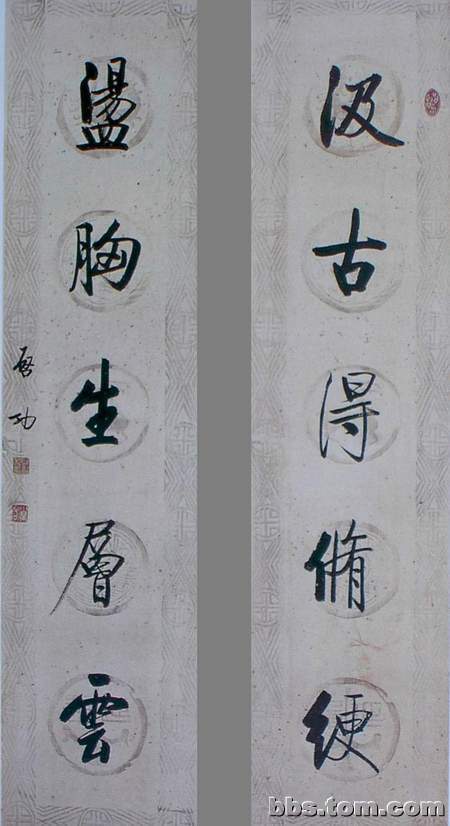 汲古得脩綆
盪胸生層雲
啓功
bbs.tom.com